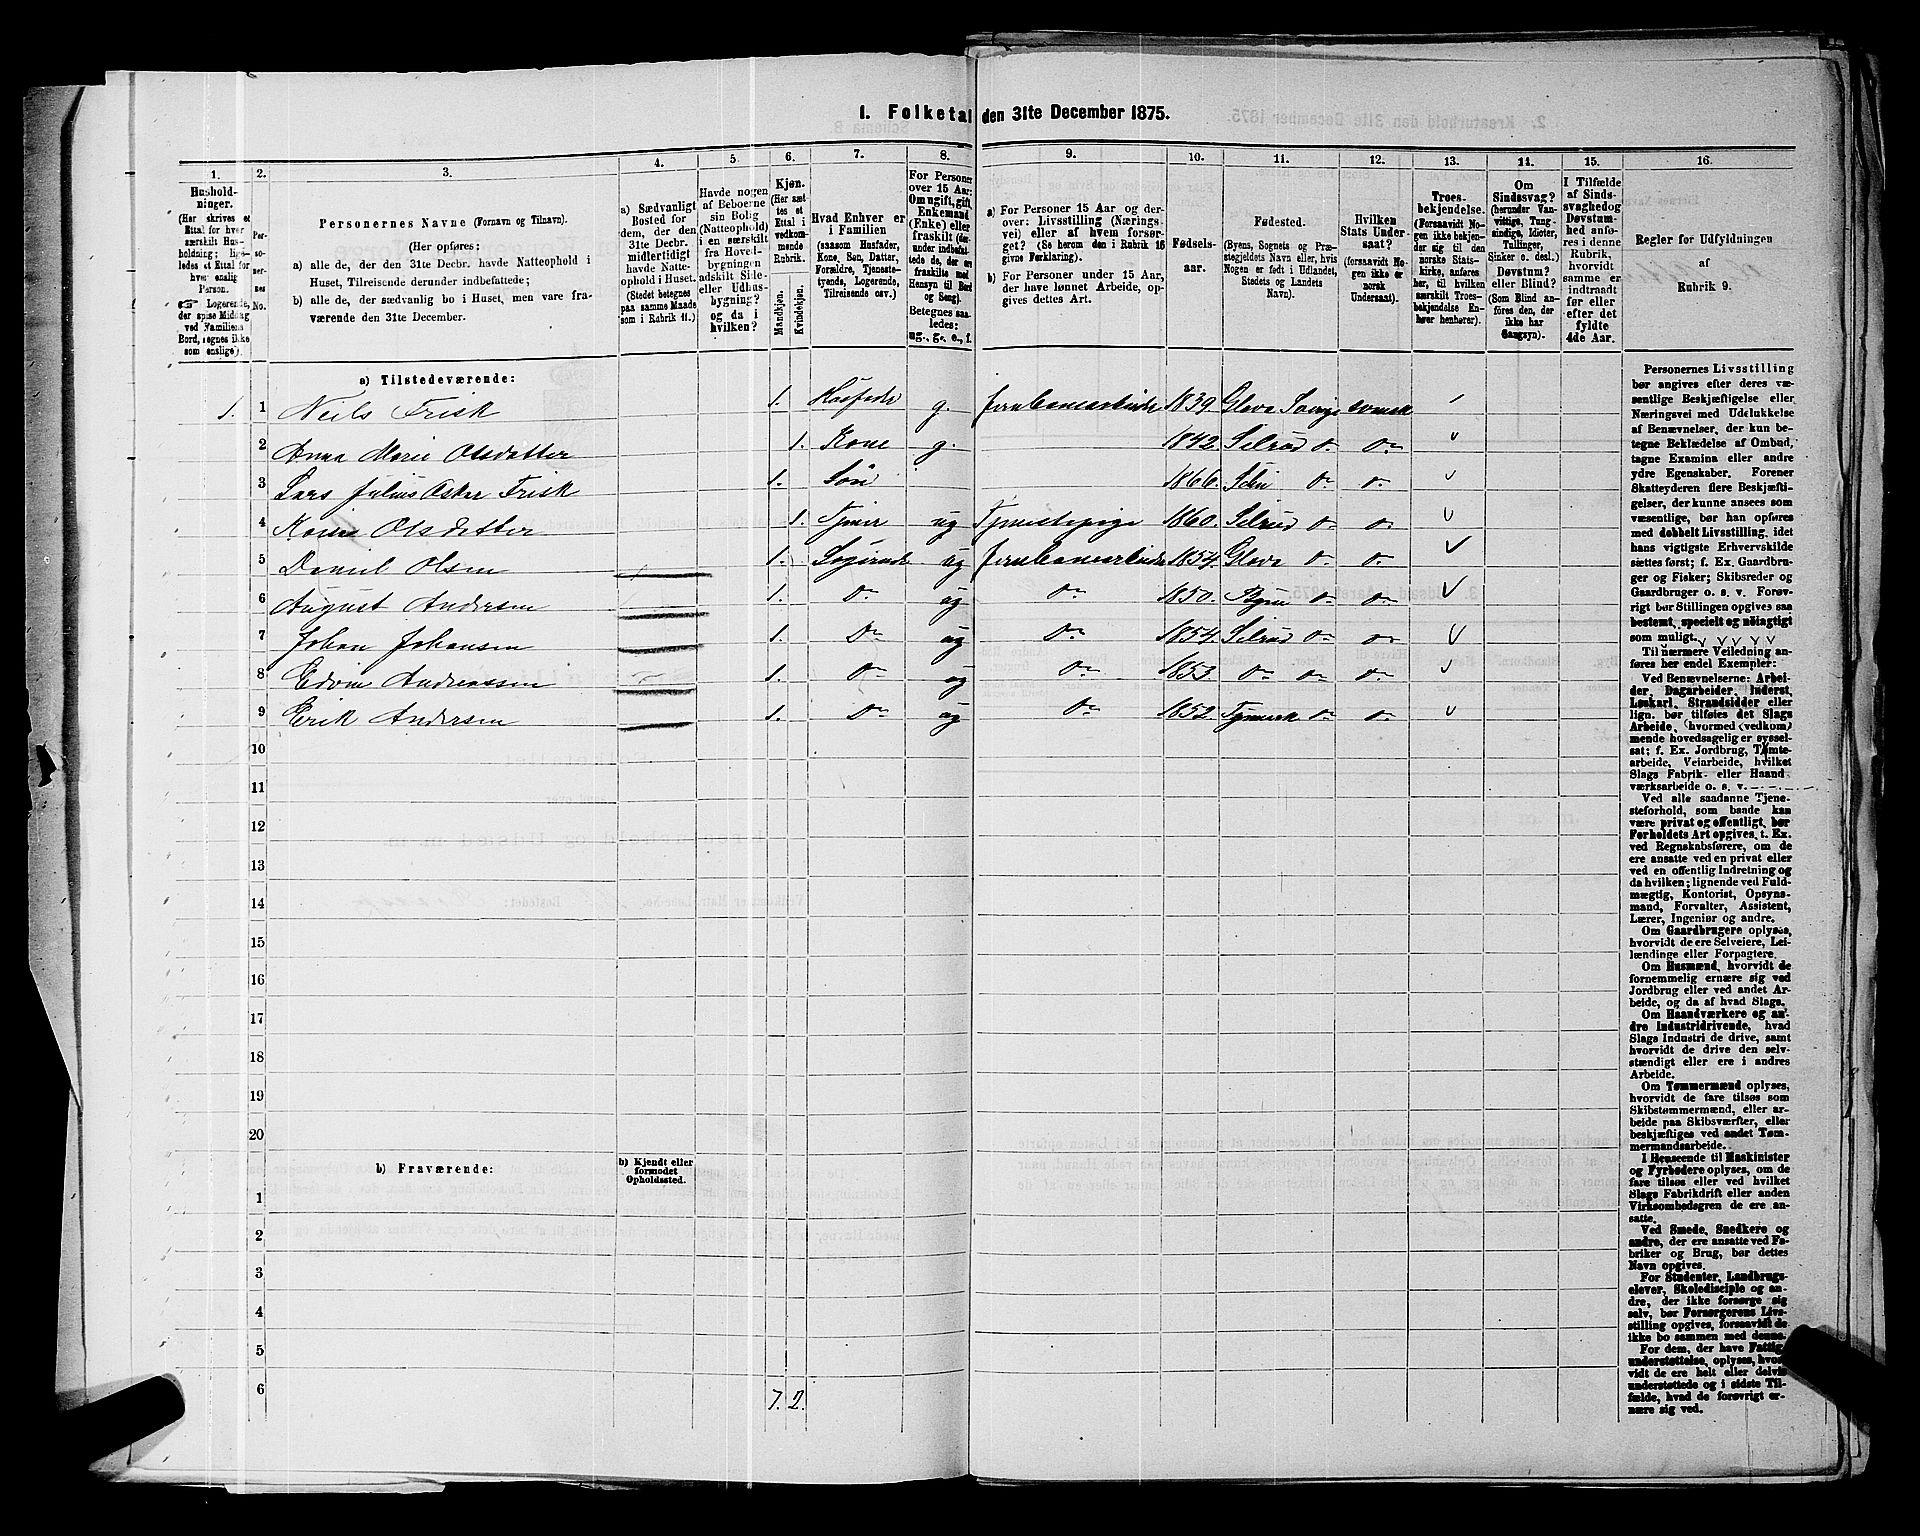 1. Folketal den 31te December 1875.
1. 2. 3. 4. 5. 6. 7. 8. 9. 10. 11. 12. 13. 14. 15. 16.
Husholdninger.
(Her skrives et Ettal for hver særskilt Husholdning; ligeledes et Ettal for hver enslig Person.
☞ Logerende, der spise Middag ved Familiens Bord, regnes ikke som enslige).
Personernes No.
Personernes Navne (Fornavn og Tilnavn).
(Her opføres:
a) alle de, der den 31te Decbr. havde Natteophold i Huset, Tilreisende derunder indbefattede;
b) alle de, der sædvanlig bo i Huset, men vare fraværende den 31te December.
a) Sædvanligt Bosted for dem, der den 31te Decbr. midlertidigt havde Natteophold i Huset.
(Stedet betegnes paa samme Maade som i Rubrik 11.)
Havde nogen af Beboerne sin Bolig (Natteophold) i en særskilt fra Hovedbygningen adskilt Side- eller Udhusbygning? og da i hvilken?
Kjøn.
(Her sættes et Ettal i vedkommende Rubrik.
Mandkjøn. Kvindekjøn.
Hvad Enhver er i Familien
(saasom Husfader, Kone, Søn, Datter, Forældre, Tjenestetyende, Logerende, Tilreisende osv.)
For Personer over 15 Aar: Om ugift, gift, Enkemand (Enke) eller fraskilt (derunder indbefattede de, der ere fraskilte med Hensyn til Bord og Seng).
Betegnes saaledes: ug., g., e., f.
a) For Personer 15 Aar og derover: Livsstilling (Næringsvei) eller af hvem forsørget? (Se herom den i Rubrik 16 givne Forklaring).
b) For Personer under 15 Aar, der have lønnet Arbeide, opgives dettes Art.
Fødselsaar.
Fødested.
(Byens, Sognets og Præstegjeldets Navn eller, hvis Nogen er født i Udlandet, Stedets og Landets Navn).
Hvilken Stats Undersaat?
(forsaavidt Nogen ikke er norsk Undersaat).
Troesbekjendelse.
(Forsaavidt Nogen ikke bekjender sig til den norske Statskirke, anføres her, til hvilken særskilt Troesbekjendelse Enhver henhører).
Om Sindssvag? (herunder Vanvittige, Tungsindige, Idioter, Tullinger, Sinker o. desl.) Døvstum? eller Blind?
(Som Blind anføres den, der ikke har Gangsyn).
I Tilfælde af Sindssvaghed og Døvstumhed anføres i denne Rubrik, hvorvidt samme er indtraadt før eller efter det fyldte 4de Aar.
Regler for Udfyldningen af Rubrik 9.
a) Tilstedeværende:
1. 1 Neils Frisk 1. Husfader g. Jernbanearbeider 1839. Glava Sverige svensk
2 Anna Marie Olsdatter 1. Kone g. 1842. Selrud do do
3 Lars Julius Oskar Frisk 1. Søn 1866. do do
4 Olsdatter 1. Tjener ug Tjenestepige 1860. Selrud do do
5 Daniel Olsen 1. Logerende ug Jernbanearbeider 1854. Glava do do
6 August Andersen 1. do ug do 1850. do do
7 Johan Johansen 1. do ug do 1854. Selrud do do
8 Edvin Andreassen 1. do ug do 1853. do do do
9 Erik Andersen 1. do ug do 1852. do do
10
11
12
13
14
15
16
17
18
19
20
b) Fraværende:
b) Kjendt eller formodet Opholdssted.
1
2
3
4
5
6
7. 2.
Personernes Livsstilling bør angives efter deres væsentlige Beskjæftigelse eller Næringsvei med Udelukkelse af Benævnelser, der kun betegne Beklædelse af Ombud, tagne Examina eller andre ydre Egenskaber. Forener Skatteyderen flere Beskjæftigelser, der kunne ansees som væsentlige, bør han opføres med dobbelt Livsstilling, idet hans vigtigste Erhvervskilde sættes først; f. Ex. Gaardbruger og Fisker; Skibsreder og Gaardbruger o. s. v. Forøvrigt bør Stillingen opgives saa bestemt, specielt og nøiagtigt som muligt.
Til nærmere Veiledning anføres her endel Exempler:
Ved Benævnelserne: Arbeider, Dagarbeider, Inderst, Løskarl, Strandsidder eller lign. bør tilføies det Slags Arbeide, (hvormed vedkommende hovedsagelig er sysselsat; f. Ex. Jordbrug, Tomtearbeide, Veiarbeide, hvilket Slags Fabrik- eller Haandværksarbeide o. s. v.
Ved alle saadanne Tjenesteforhold, som baade kan være privat og offentligt, bør Forholdets Art opgives, t. Ex. ved Regnskabsførere, om de ere ansatte ved en privat eller ved en offentlig Indretning og da hvilken; lignende ved Fuldmægtig, Kontorist, Opsynsmand, Forvalter, Assistent, Lærer, Ingeniør og andre.
Om Gaardbrugere oplyses, hvorvidt de ere Selveiere, Leilændinge eller Forpagtere.
Om Husmænd, hvorvidt de fornemmelig ernære sig ved Jordbrug eller ved andet Arbeide, og da af hvad Slags.
Om Haandværkere og andre Industridrivende, hvad Slags Industri de drive, samt hvorvidt de drive den selvstændigt eller ere i andres Arbeide.
Om Tømmermænd oplyses, hvorvidt de fare tilsøs som Skibstømmermænd, eller arbeide paa Skibsværfter, eller beskjæftiges ved andet Tømmermandsarbeide.
I Henseende til Maskinister og Fyrbødere oplyses, om de fare tilsøs eller ved hvilket Slags Fabrikdrift eller anden Virksomhedsgren de ere ansatte.
Ved Smede, Snedkere og andre, der ere ansatte ved Fabriker og Brug, bør dettes Navn opgives.
For Studenter, Landbrugselever, Skoledisciple og andre, der ikke forsørge sig selv, bør Forsørgerens Livsstilling opgives, forsaavidt de ikke bo sammen med denne.
For dem, der have Fattigunderstøttelse, oplyses, hvorvidt de ere helt eller delvis understøttede og i sidste Tilfælde, hvad de forøvrigt ernære sig ved.